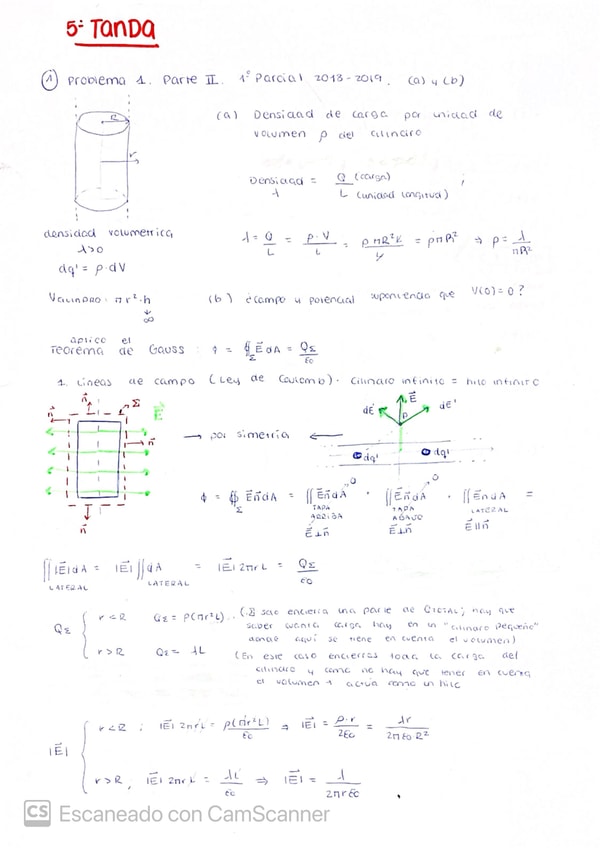 5ª TANDA
① Problema 1. Parte II. 1º Parcial 2018-2019. (a) y (b)
R
r
(a) Densidad de carga por unidad de
volumen ρ del cilindro
Densidad λ = Q (carga) / L (unidad longitud) ;
densidad volumetrica
λ>0
dq' = ρ·dV
λ = Q/L = ρ·V/L = ρπR²L/L = ρπR² ⇒ ρ = λ/πR²
VCILINDRO = πr²·h
∞
(b) ¿campo y potencial suponiendo que V(0)=0?
aplico el
Teorema de Gauss : ϕ = ∯Σ E⃗ dA = QΣ/ε0
1. Lineas de campo (Ley de Coulomb). Cilindro infinito = hilo infinito
n⃗ n⃗ Σ E⃗ n⃗ n⃗
→ por simetría ←
dE⃗' E⃗ dE⃗' P
dq' dq'
ϕ = ∯Σ E⃗n⃗dA = ∬ E⃗n⃗dA + ∬ E⃗n⃗dA + ∬ E⃗n⃗dA =
0 0
TAPA ARRIBA TAPA ABAJO LATERAL
E⃗⊥n⃗ E⃗⊥n⃗ E⃗∥n⃗
∬LATERAL |E⃗|dA = |E⃗| ∬LATERAL dA = |E⃗| 2πrL = QΣ/ε0
QΣ { r<R QΣ = ρ(πr²L)... (solo encierra una parte de QTOTAL; hay que
saber cuanta carga hay en un "cilindro pequeño"
donde aquí se tiene en cuenta el volumen)
r>R QΣ = λL (En este caso encierras toda la carga del
cilindro y como no hay que tener en cuenta
el volumen λ actúa como un hilo
|E⃗| { r<R ; |E⃗| 2πrL = ρ(πr²L)/ε0 ⇒ |E⃗| = ρ·r/2ε0 = λr/2πε0R²
r>R, |E⃗| 2πrL = λL/ε0 ⇒ |E⃗| = λ/2πrε0
CS Escaneado con CamScanner